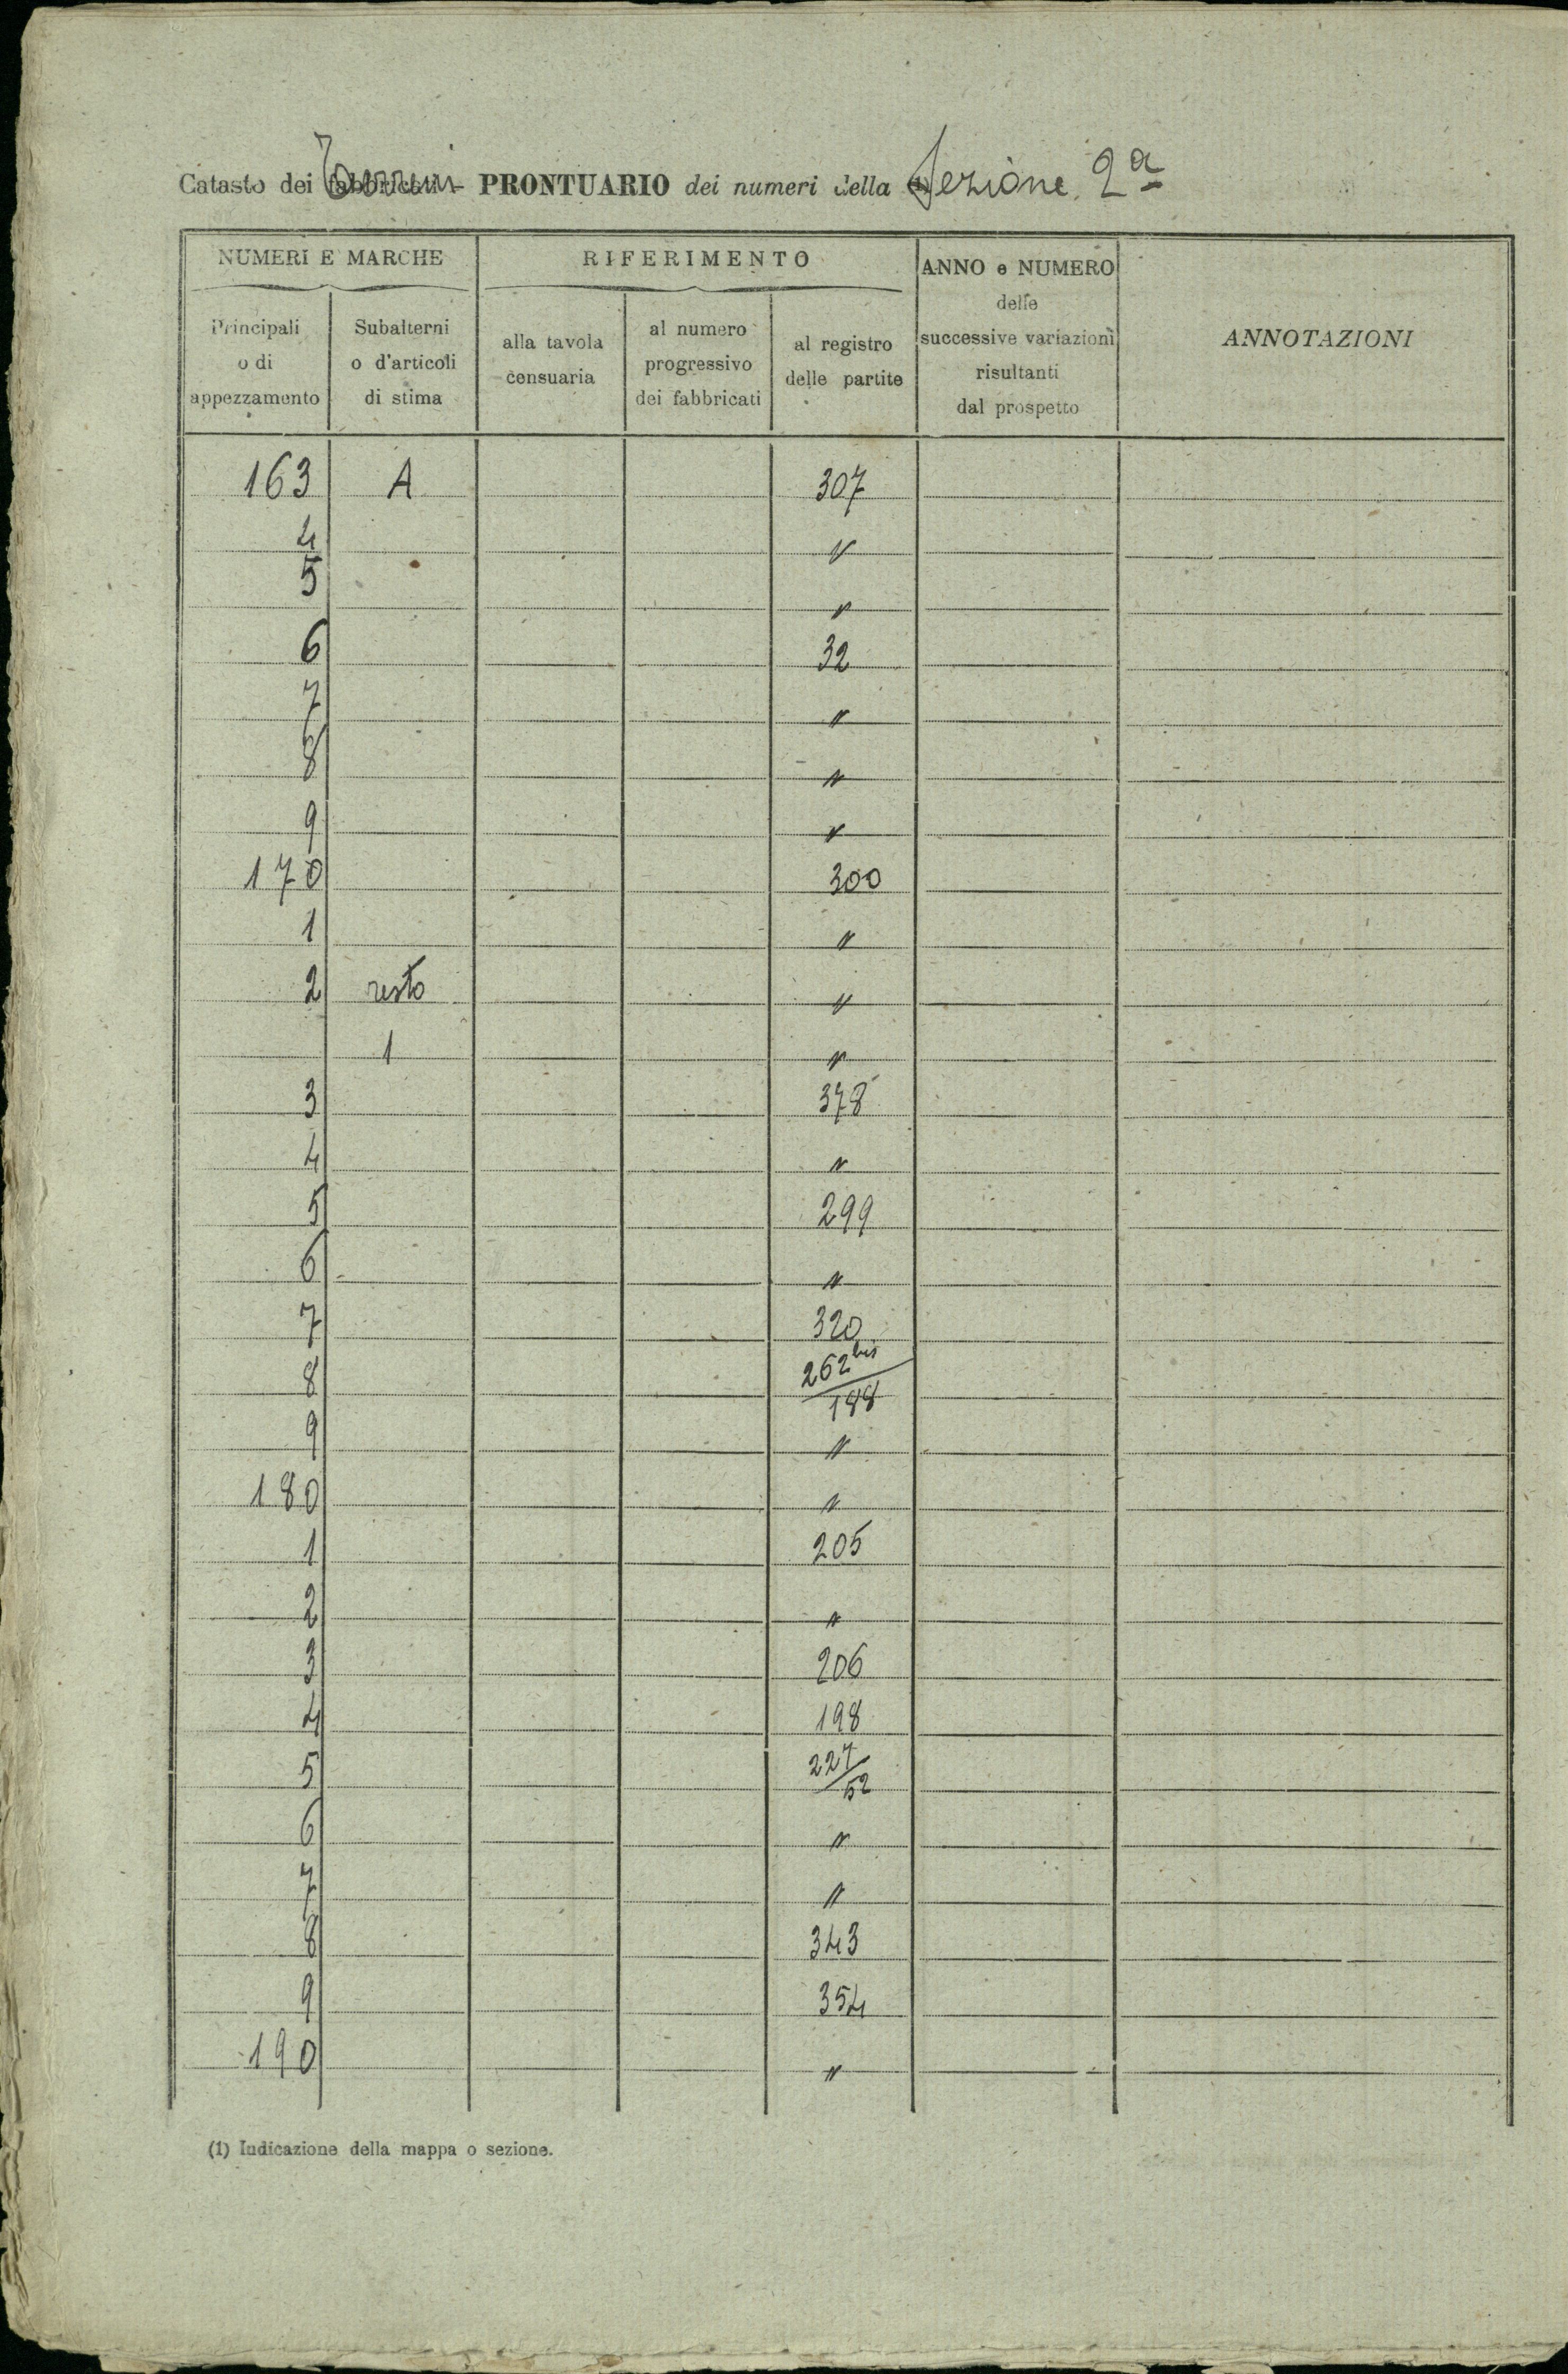 Catasto dei Terreni - PRONTUARIO dei numeri della Sezione 2ª
NUMERI E MARCHE RIFERIMENTO ANNO e NUMERO delle successive variazioni risultanti dal prospetto ANNOTAZIONI
Principali o di appezzamento Subalterni o d'articoli di stima alla tavola censuaria al numero progressivo dei fabbricati al registro delle partite
163 A 307
4 "
5 "
6 32
7 "
8 "
9 "
170 300
1 "
2 resto "
1 "
3 378
4 "
5 299
6 "
7 320
8 262 bis / 188
9 "
180 "
1 205
2 "
3 206
4 198
5 227/52
6 "
7 "
8 343
9 354
190 "
(1) Indicazione della mappa o sezione.